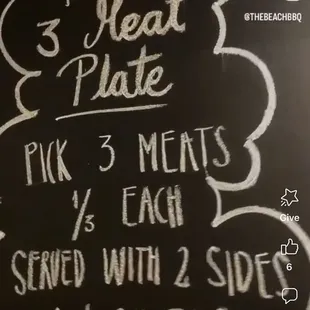 @THEBEACHBBQ
3 Meat
Plate
PICK 3 MEATS
1/3 EACH
SERVED WITH 2 SIDES
Give
6